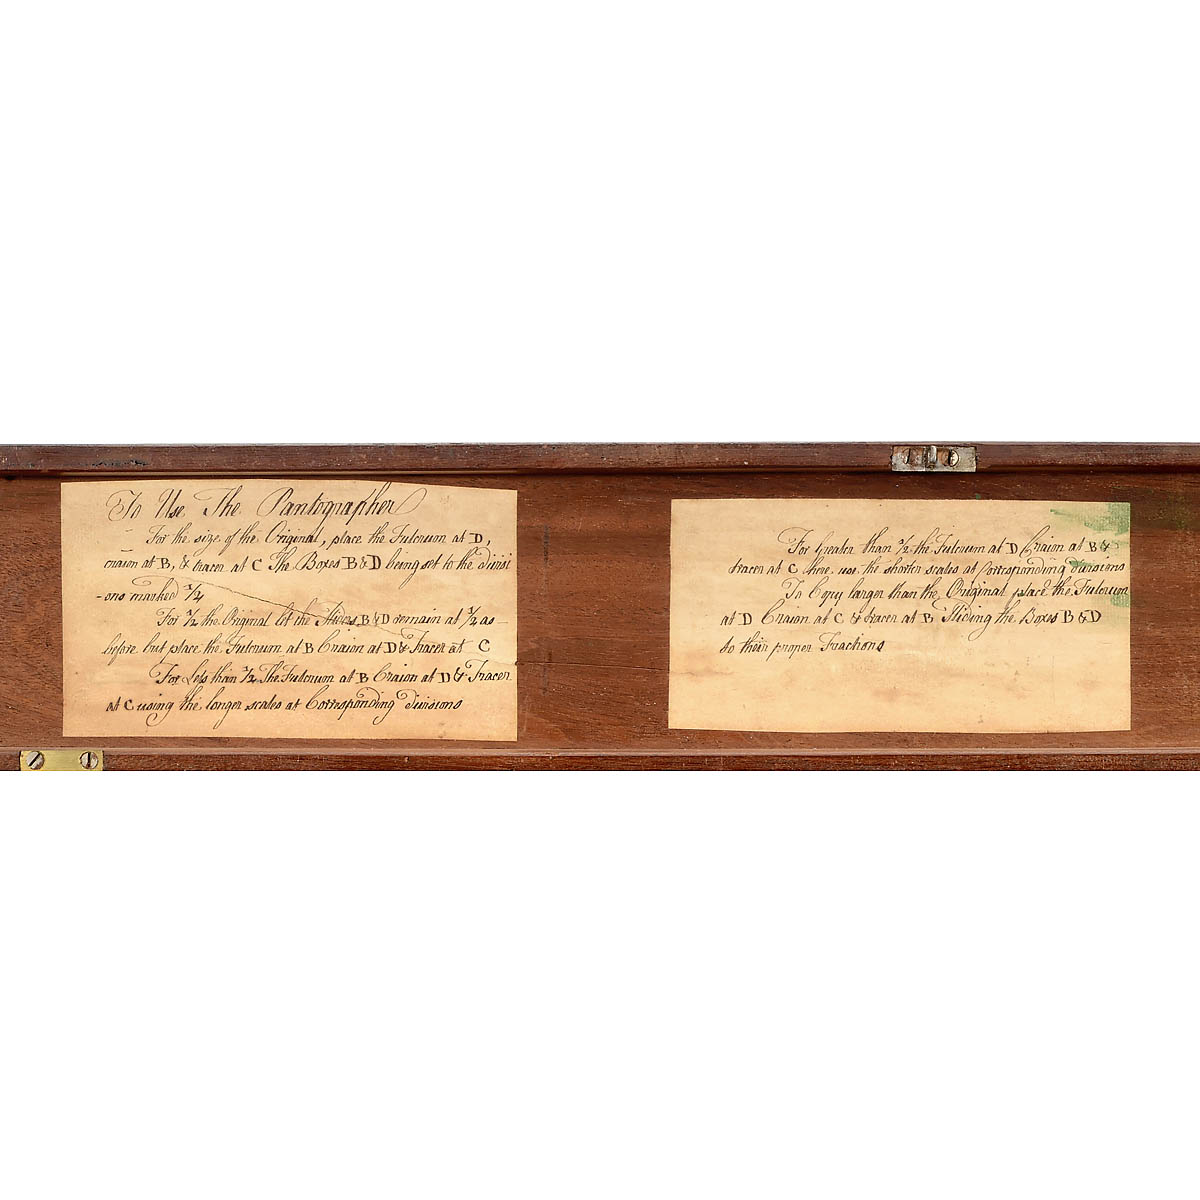 To Use The Pantographer
For the size of the Original, place the Fulcrum at D,
craion at B, & tracer at C The Boxes B & D being set to the divisi
-ons marked 1/2
For 1/2 the Original let the Slides B & D remain at 1/2 as
before but place the Fulcrum at B Craion at D & Tracer at C
For Less than 1/2 The Fulcrum at B Craion at D & Tracer
at C using the longer scales at Corresponding divisions
For Greater than 1/2 the Fulcrum at D Craion at B &
tracer at C here use the shorter scales at Corresponding divisions
To Copy larger than the Original place the Fulcrum
at D Craion at C & tracer at B Sliding the Boxes B & D
to their proper Fractions